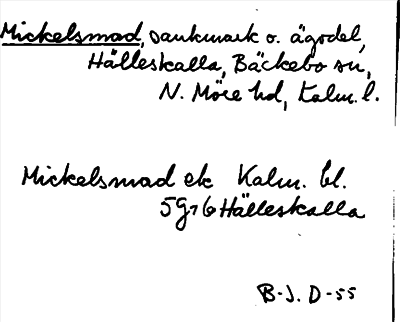 Mickelsmad, sankmark o. ägodel,
Hälleskalla, Bäckebo sn,
N. Möre hd, Kalm. l.
Mickelsmad ek Kalm. bl.
5g76 Hälleskalla
B-J. D-55